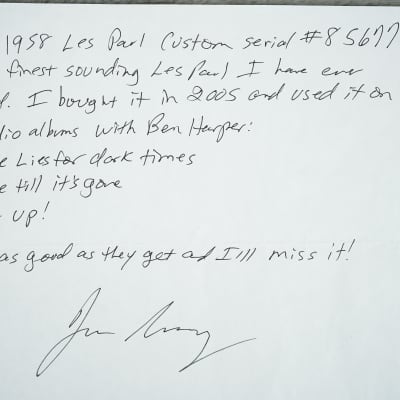 1958 Les Paul Custom serial #85677
finest sounding Les Paul I have ever
I bought it in 2005 and used it on
dio albums with Ben Harper:
e Lies for dark times
e till it's gone
up!
as good as they get ad I'll miss it!